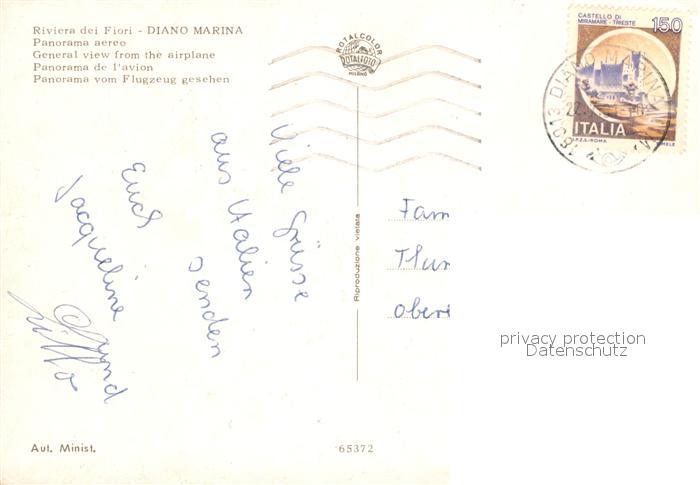 Riviera dei Fiori - DIANO MARINA
Panorama aereo
General view from the airplane
Panorama de l'avion
Panorama vom Flugzeug gesehen
ROTALCOLOR
ROTALFOTO
MILANO
CASTELLO DI
MIRAMARE - TRIESTE
150
ITALIA
I.P.Z.S. - ROMA
18013 DIANO MARINA
Viele Grüsse
aus Italien
senden
Euch
Jacqueline
und
Riproduzione vietata
Fam
Thur
Ober
privacy protection
Datenschutz
Aut. Minist.
65372